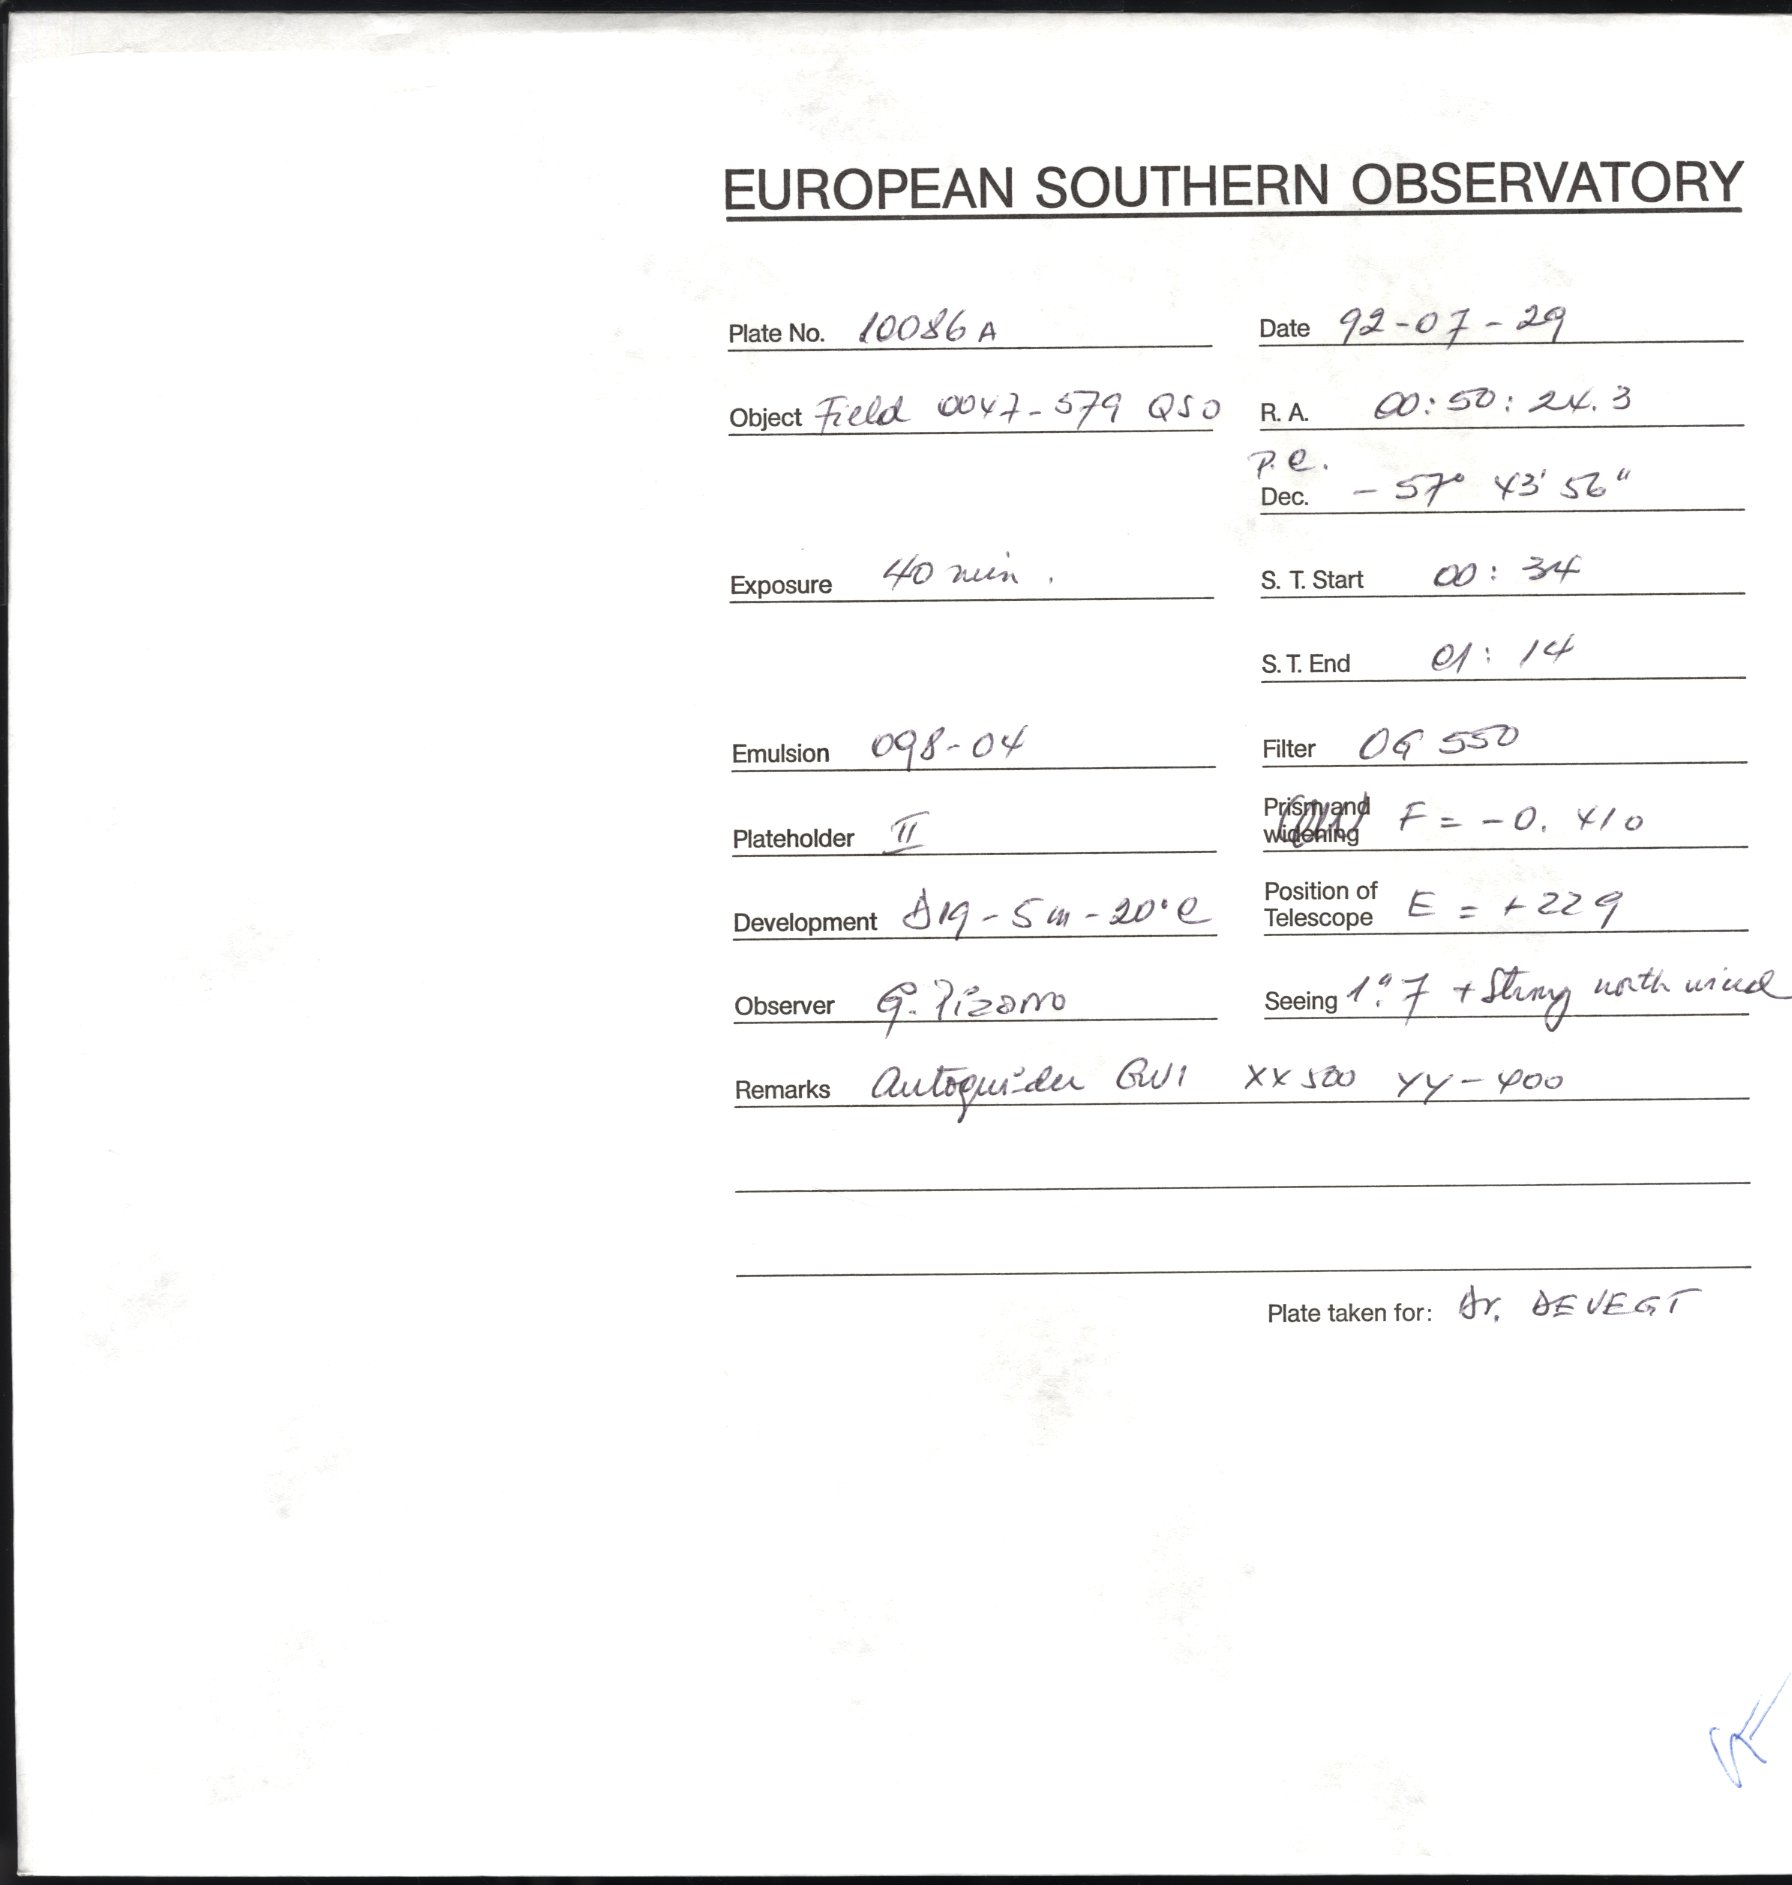 EUROPEAN SOUTHERN OBSERVATORY
Plate No. 10086 A Date 92-07-29
Object Field 0047-579 QSO R. A. 00:50:24.3
P.e.
Dec. - 57° 43' 56"
Exposure 40 min. S. T. Start 00:34
S. T. End 01:14
Emulsion 098-04 Filter OG 550
Plateholder II Prism and widening F = -0.410
Development D19-5m-20°C Position of Telescope E = +229
Observer G. Pizarro Seeing 1".7 + Strong north wind
Remarks Autoguider XX 500 YY-400
Plate taken for: Dr. DEVEGT